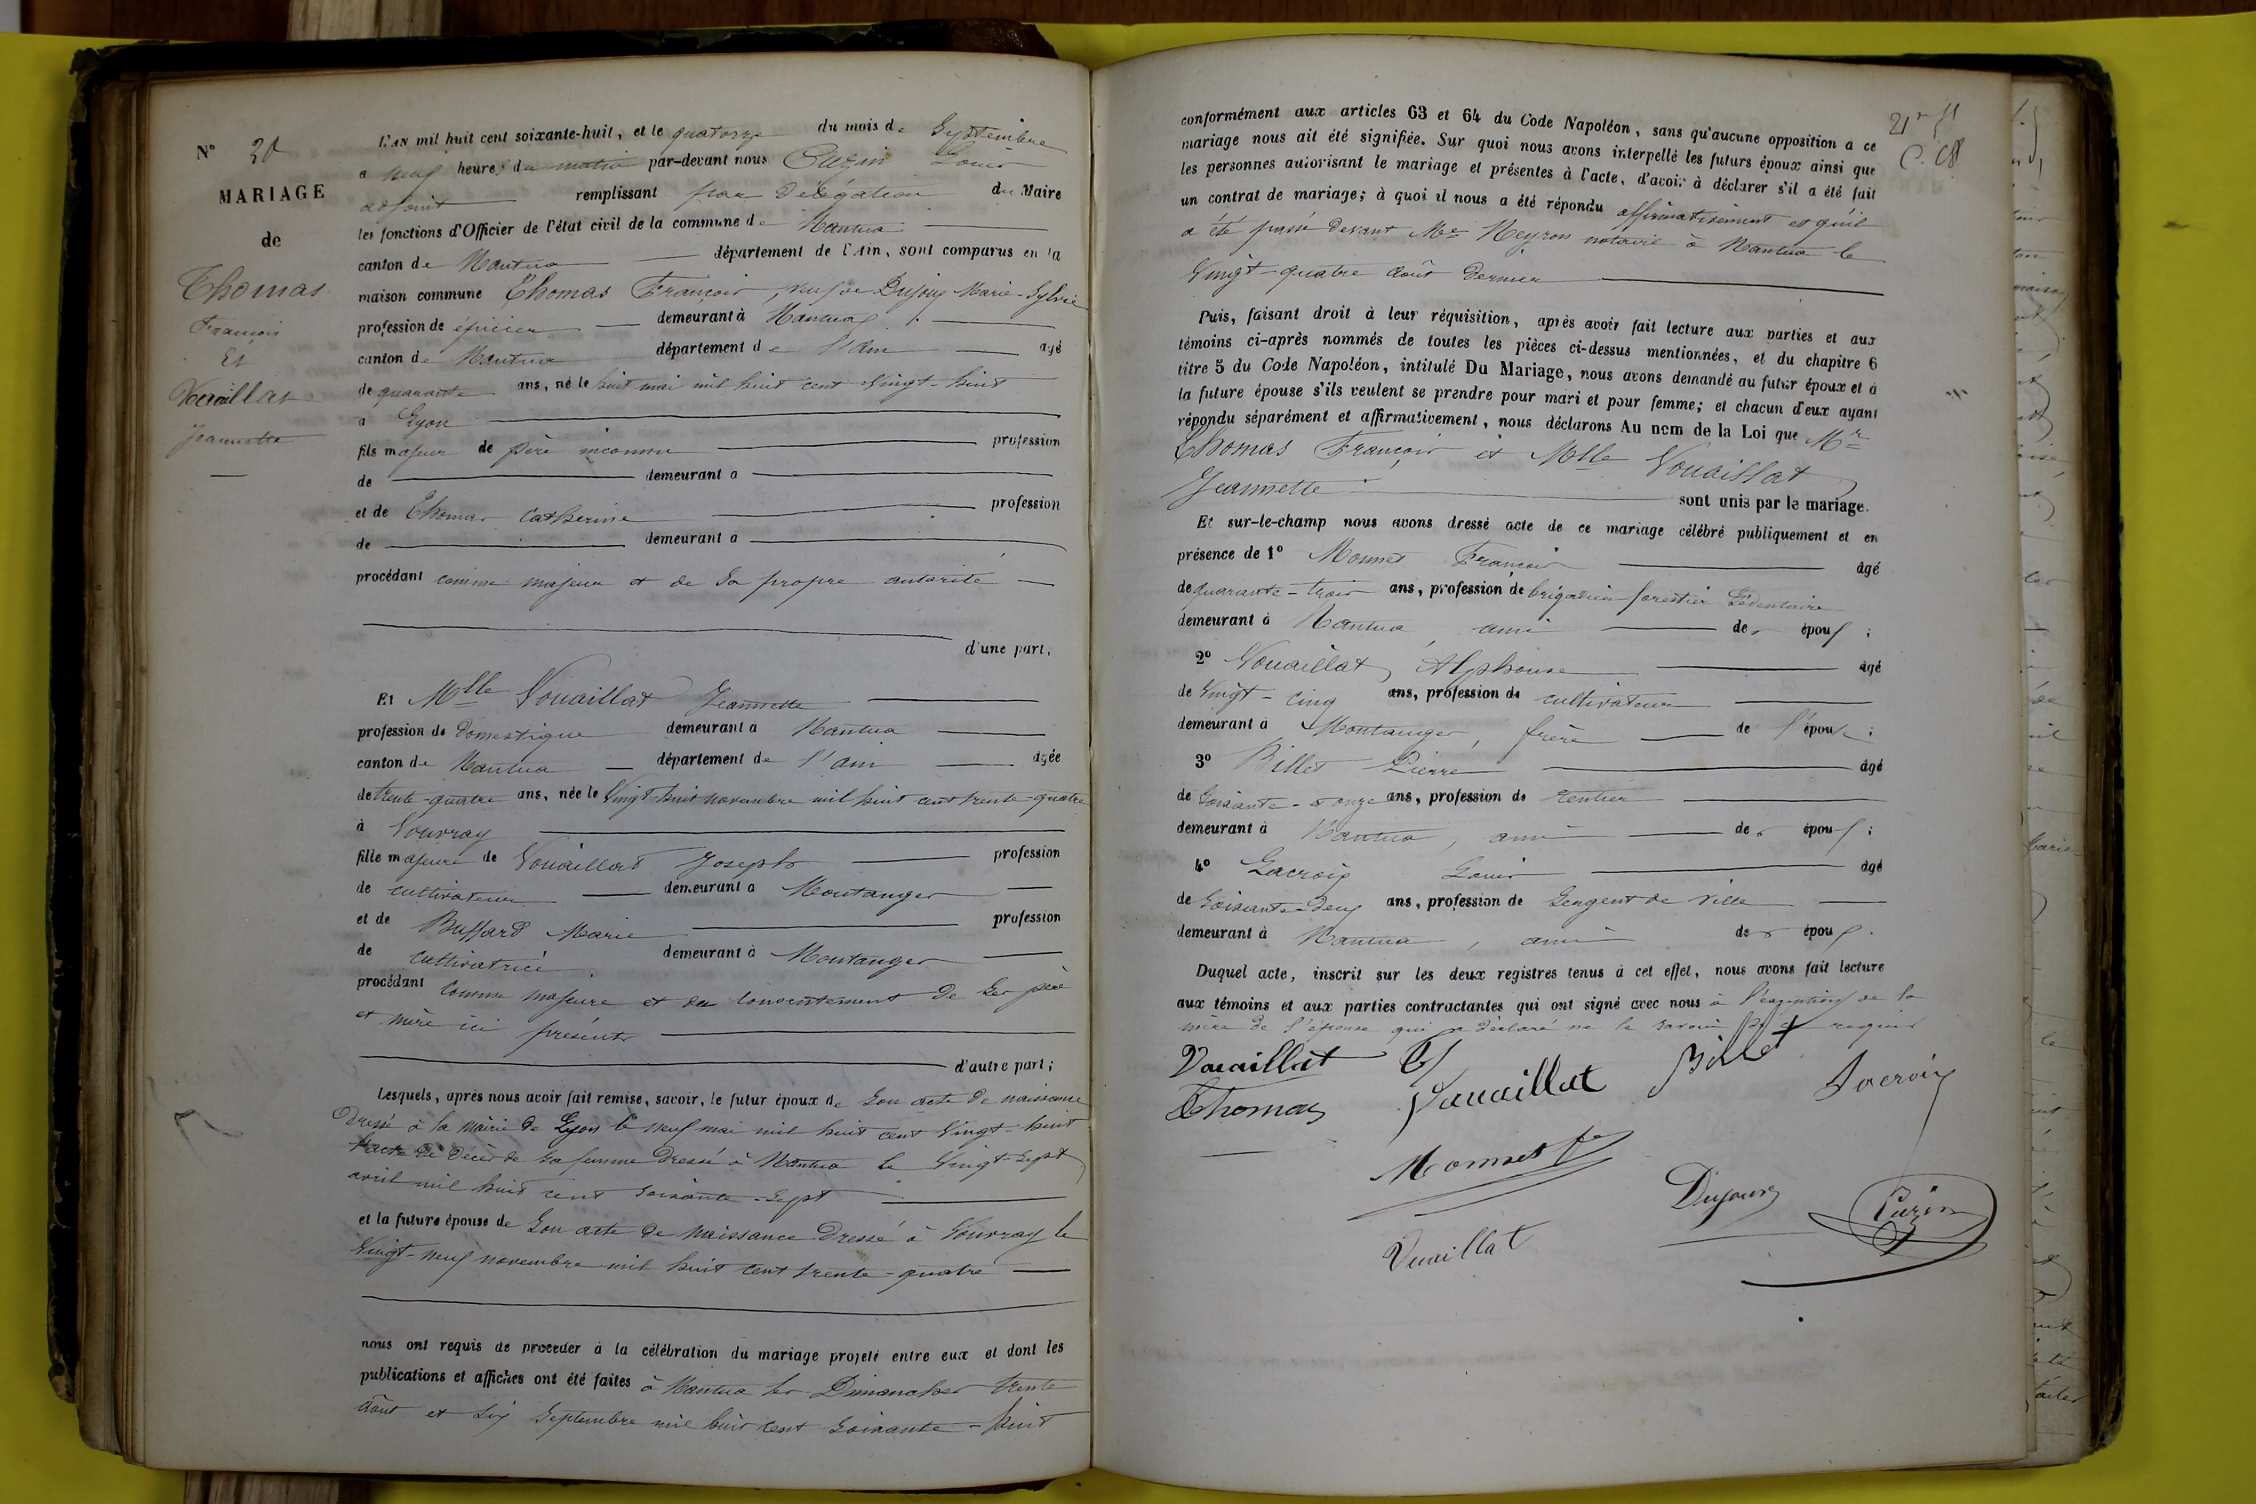 N° 30
MARIAGE
de
Thomas
François
Et
Vouaillat
Jeannette
L'AN mil huit cent soixante-huit, et le quatorze du mois de Septembre
a neuf heures du matin par-devant nous Cuzin Louis
adjoint remplissant par délégation du Maire
les fonctions d'Officier de l'état civil de la commune de Nantua
canton de Nantua département de l'Ain, sont comparus en la
maison commune Thomas François, veuf de Dujoux Marie-Sylvie
profession de épicier demeurant à Nantua
canton de Nantua département de l'Ain agé
de quarante ans, né le huit mai mil huit cent vingt-huit
a Lyon
fils majeur de père inconnu profession
de demeurant a
et de Thomas Catherine profession
de demeurant a
procédant comme majeur et de sa propre autorité
d'une part,
Et Mlle Vouaillat Jeannette
profession de domestique demeurant a Nantua
canton de Nantua département de l'ain agée
de trente-quatre ans, née le vingt-huit novembre mil huit cent trente-quatre
à Vouvray
fille majeure de Vouaillat Joseph profession
de cultivateur demeurant a Montanger
et de Buffard Marie profession
de cultivatrice demeurant à Montanger
procédant comme majeure et du consentement de ses père
et mère ici présents
d'autre part;
Lesquels, après nous avoir fait remise, savoir, le futur époux de son acte de naissance
dressé à la mairie de Lyon le neuf mai mil huit cent vingt-huit
l'acte de décès de sa femme dressé à Nantua le vingt-sept
avril mil huit cent soixante-sept
et la future épouse de son acte de naissance dressé à Vouvray le
vingt-neuf novembre mil huit cent trente-quatre
nous ont requis de procéder à la célébration du mariage projeté entre eux et dont les
publications et affiches ont été faites à Nantua les Dimanches trente
août et six septembre mil huit cent soixante-huit
21
C. 68
conformément aux articles 63 et 64 du Code Napoléon, sans qu'aucune opposition a ce
mariage nous ait été signifiée. Sur quoi nous avons interpellé les futurs époux ainsi que
les personnes autorisant le mariage et présentes à l'acte, d'avoir à déclarer s'il a été fait
un contrat de mariage; à quoi il nous a été répondu affirmativement et qu'il
a été passé devant Me Neyron notaire à Nantua le
vingt-quatre août dernier
Puis, faisant droit à leur réquisition, après avoir fait lecture aux parties et aux
témoins ci-après nommés de toutes les pièces ci-dessus mentionnées, et du chapitre 6
titre 5 du Code Napoléon, intitulé Du Mariage, nous avons demandé au futur époux et à
la future épouse s'ils veulent se prendre pour mari et pour femme; et chacun d'eux ayant
répondu séparément et affirmativement, nous déclarons Au nom de la Loi que Mr
Thomas François et Mlle Vouaillat
Jeannette sont unis par le mariage.
Et sur-le-champ nous avons dressé acte de ce mariage célébré publiquement et en
présence de 1° Monnet François âgé
de quarante-trois ans, profession de brigadier forestier sédentaire
demeurant à Nantua, ami des époux;
2° Vouaillat Alphonse âgé
de vingt-cinq ans, profession de cultivateur
demeurant à Montanger, frère de l'épouse;
3° Billet Pierre âgé
de soixante-onze ans, profession de rentier
demeurant à Nantua, ami des époux;
4° Lacroix Louis âgé
de soixante-deux ans, profession de sergent de ville
demeurant à Nantua, ami des époux.
Duquel acte, inscrit sur les deux registres tenus à cet effet, nous avons fait lecture
aux témoins et aux parties contractantes qui ont signé avec nous à l'exception de la
mère de l'épouse qui a déclaré ne le savoir de ce requise
Vouaillat
Thomas
Vouaillat
Billet
Lacroix
Monnet
Dujoux
Cuzin
Vuaillat